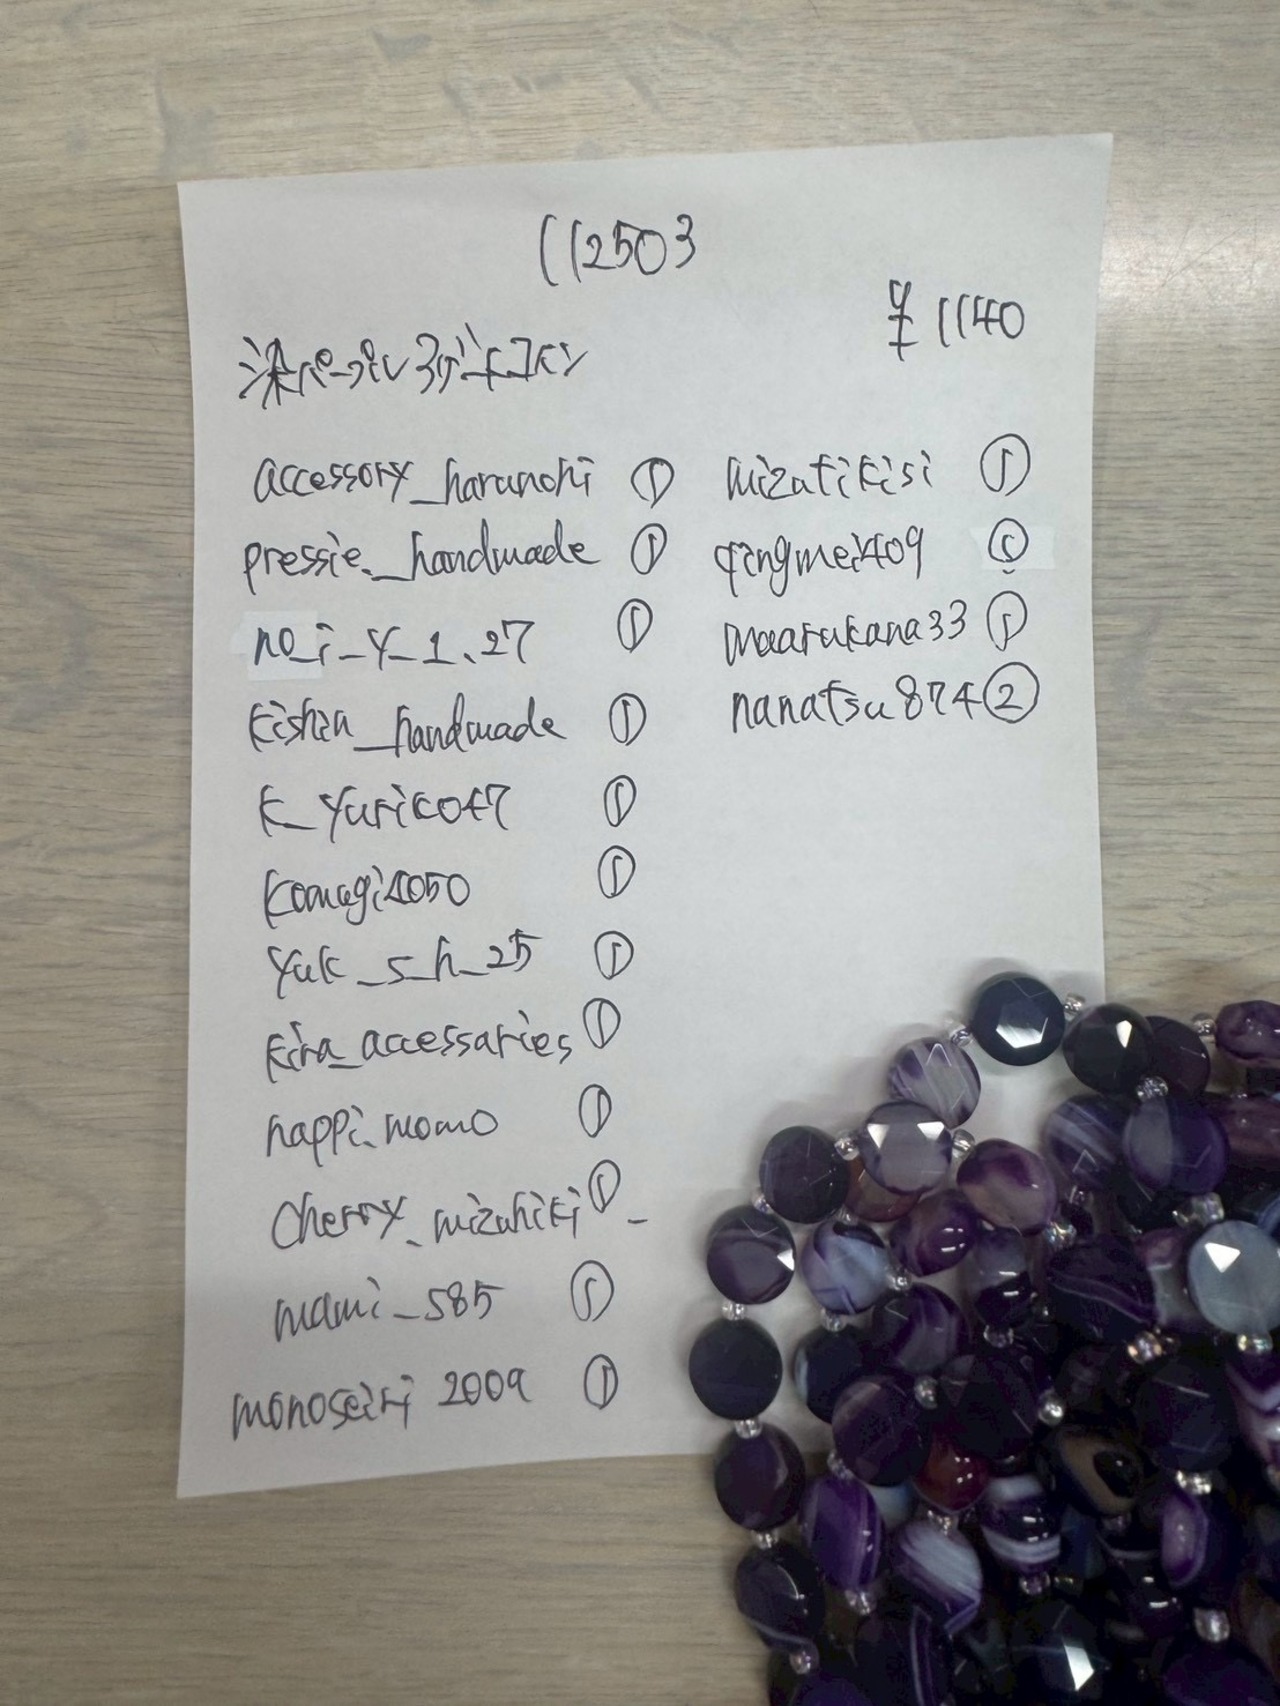 112503
¥1140
染パープル
accessory_haranohi ①
pressie._handmade ①
no_i_y_1.27 ①
kishin_handmade ①
k_yuriko47 ①
komugi4050 ①
yuk_s_h_25 ①
kira_accessaries ①
happi.momo ①
cherry_mizuhiki_ ①
mami_585 ①
monoseiri 2009 ①
mizutikisi ①
qingmei409
maarukana33 ①
nanatsu874 ②